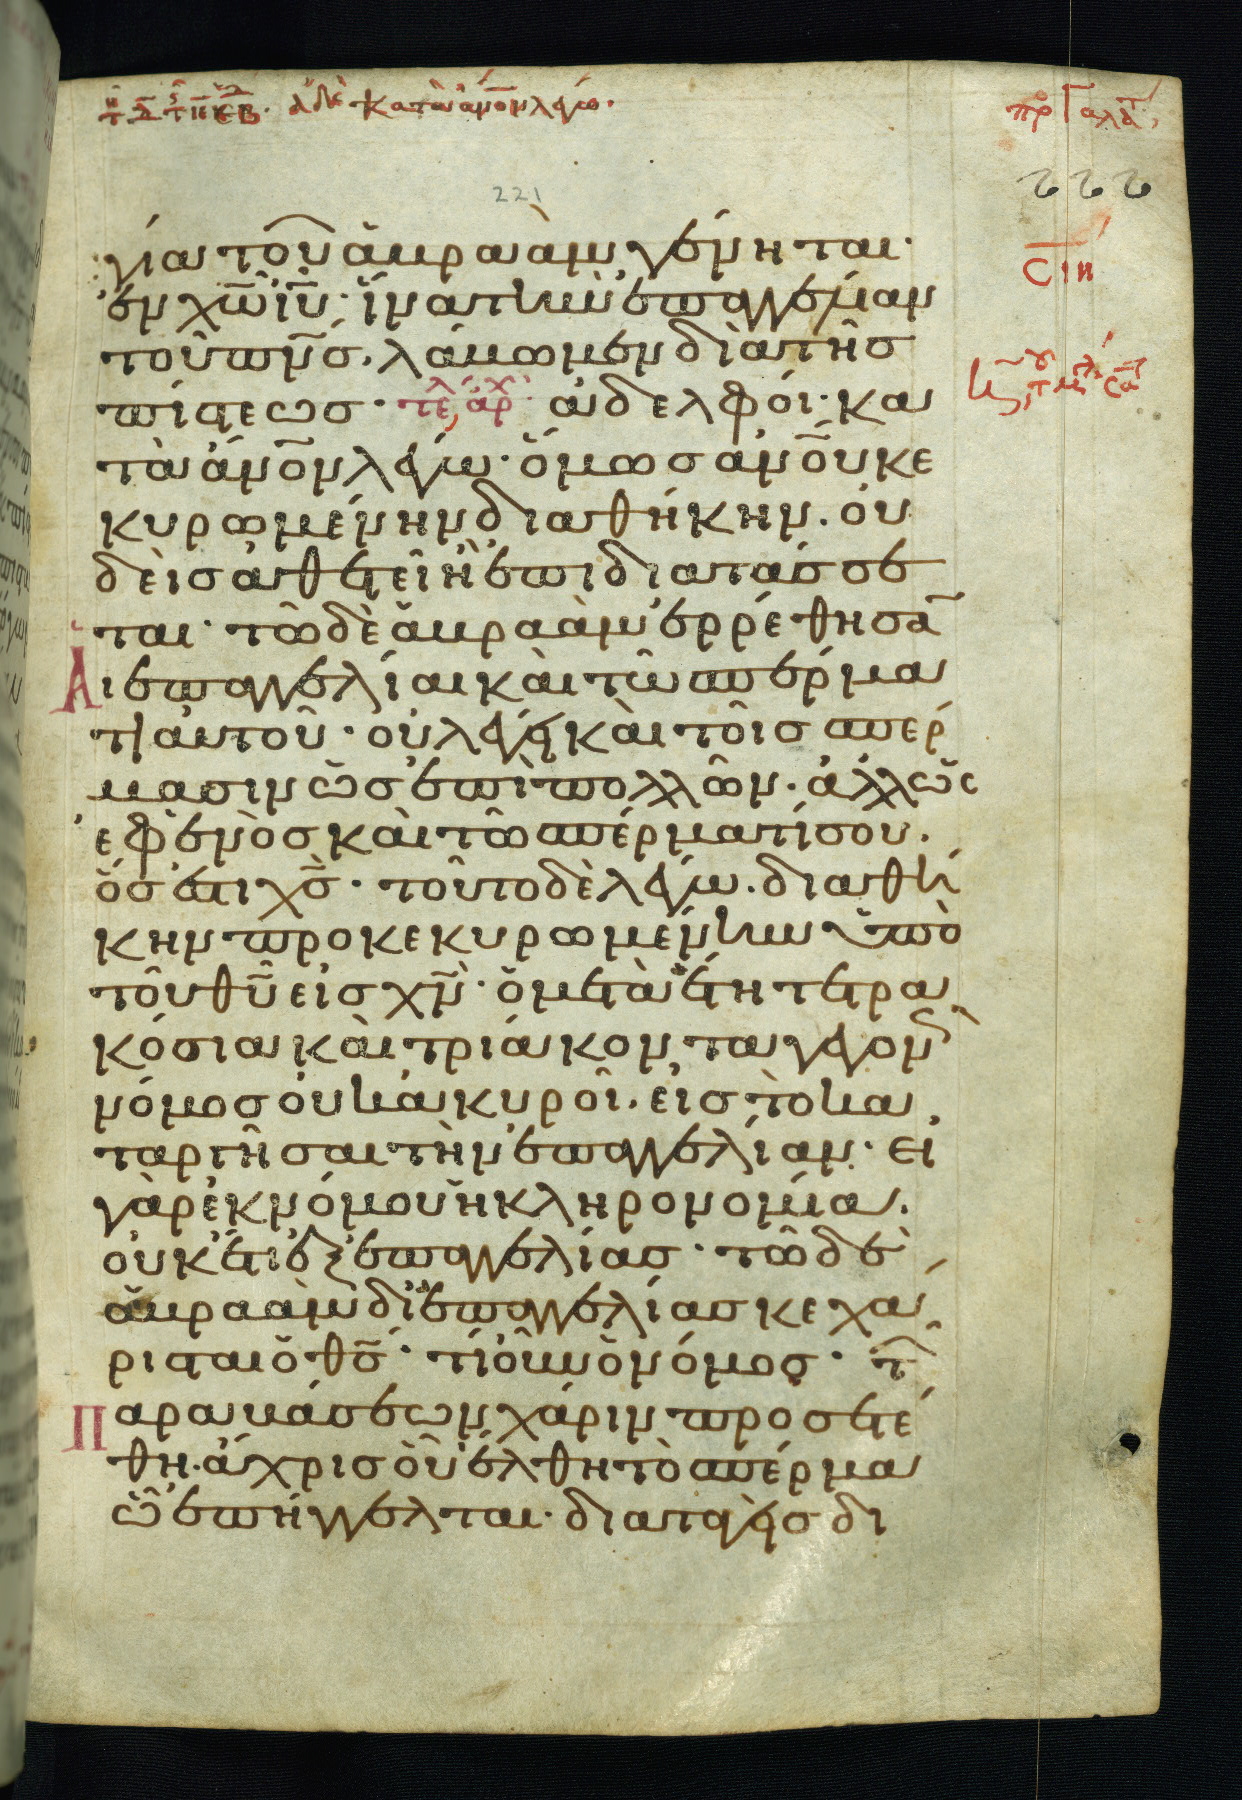 πρ Γαλατ
κατα ανον λεγω.
222
221
σιη
γία τοῦ ἀβραὰμ γένηται·
ἐν χω ιυ· ἵνα τὴν ἐπαγγελίαν
τοῦ πνσ. λάβωμεν διὰ τῆσ
πίστεωσ· τε αρχ ἀδελφοί· κα
τὰ ἄνον λέγω· ὅμωσ ἀνου κε
κυρωμένην διαθήκην. οὐ
δεὶσ ἀθετεῖ ἢ ἐπιδιατάσσε
ται· τῶ δὲ ἀβραὰμ ἐρρέθησα
Αἱ ἐπαγγελίαι καὶ τῶ σπέρμα
τι αὐτοῦ· οὐ λέγει καὶ τοῖσ σπέρ
μασιν ὡσ ἐπὶ πολλῶν· ἀλλ ὡσ
ἐφ ἑνὸσ καὶ τῶ σπέρματί σου.
ὅσ ἐστι χσ· τοῦτο δὲ λέγω. διαθή
κην προκεκυρωμένην ὑπὸ
τοῦ θυ εἰσ χν· ὁ μετὰ ἔτη τετρα
κόσια καὶ τριάκοντα γεγονὼ
νόμοσ οὐκ ἀκυροῖ. εἰσ τὸ κα
ταργῆσαι τὴν ἐπαγγελίαν· εἰ
γὰρ ἐκ νόμου ἡ κληρονομία.
οὐκ ἔτι ἐξ ἐπαγγελίασ· τῶ δὲ
ἀβραὰμ δι ἐπαγγελίασ κεχά
ρισται ὁ θσ· τί οὖν ὁ νόμοσ· τῶ
Παραβάσεων χάριν προσετέ
θη. ἄχρισ οὗ ἔλθη τὸ σπέρμα
ὧ ἐπήγγελται· διαταγεὶσ δι